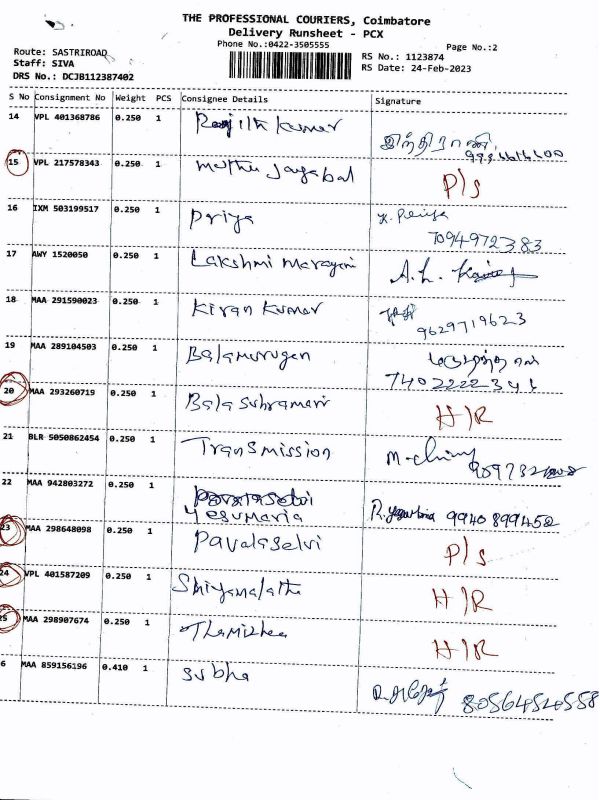 THE PROFESSIONAL COURIERS, Coimbatore
Delivery Runsheet - PCX
Phone No.:0422-3505555
Page No.:2
Route: SASTRIROAD
Staff: SIVA
DRS No.: DCJB112387402
RS No.: 1123874
RS Date: 24-Feb-2023
S No Consignment No Weight PCS Consignee Details Signature
14 VPL 401368786 0.250 1 Kumar
இந்திராணி
15 VPL 217578343 0.250 1 muthu Jayabal P/S
16 IXM 503199517 0.250 1 Priya
7094972383
17 AWY 1520050 0.250 1 Lakshmi Narayani A.L.
18 MAA 291590023 0.250 1 Kiran Kumar
9629719623
19 MAA 289104503 0.250 1 Balamurugan
20 MAA 293260719 0.250 1 Bala Subramani H/R
21 BLR 5050862454 0.250 1 Transmission
22 MAA 942803272 0.250 1
Yesumaria 9940899452
23 MAA 298648098 0.250 1 Pavalaselvi P/S
24 VPL 401587209 0.250 1 Shiyamalatha H/R
25 MAA 298907674 0.250 1 H/R
6 MAA 859156196 0.410 1 Subha